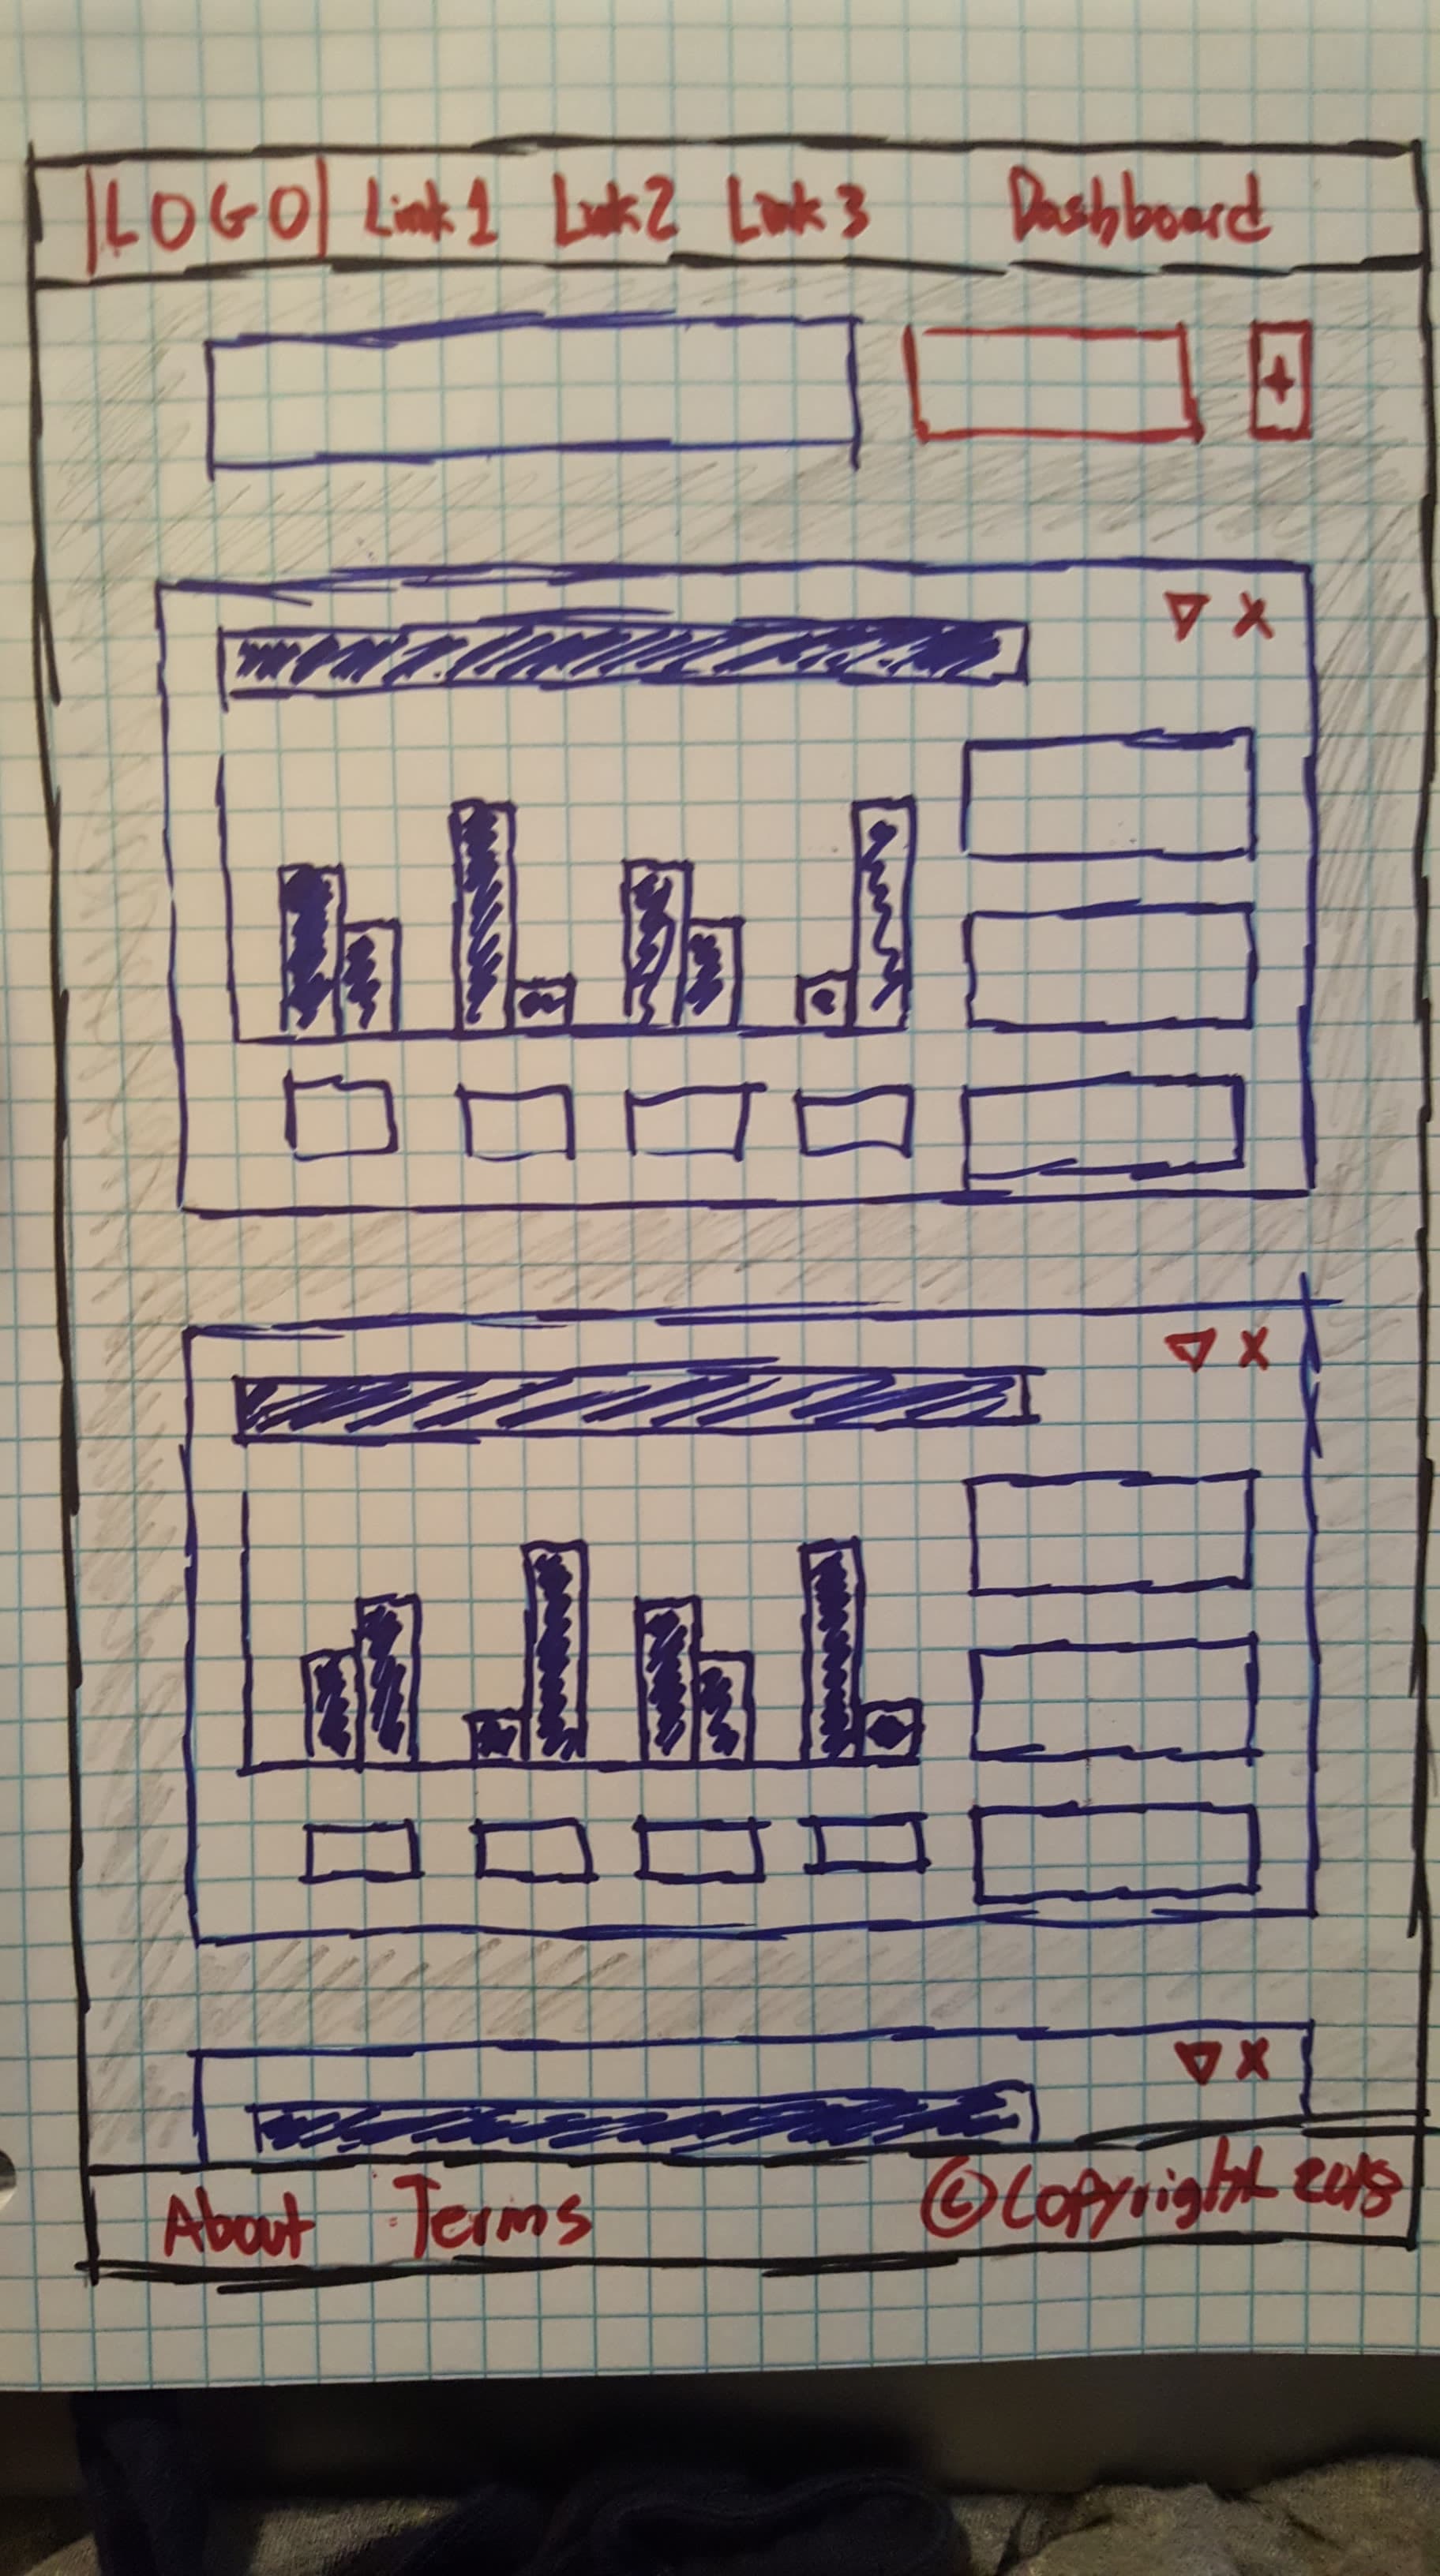 LOGO Link1 Link2 Link3 Dashboard
+
X
X
X
About Terms © Copyright 2018